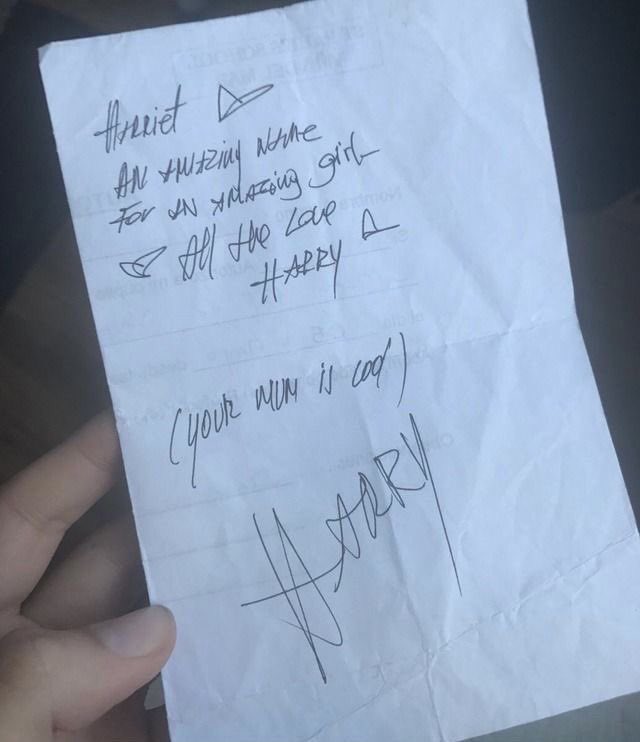 Harriet
AN AMAZING NAME
FOR AN AMAZING girl
All the Love
HARRY
(YOUR MUM is cool)
HARRY